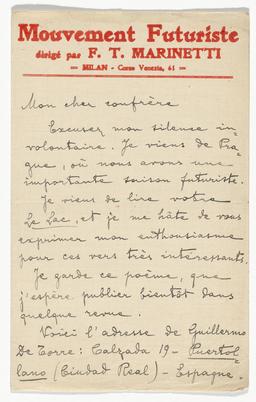 Mouvement Futuriste
dirigé par F. T. MARINETTI
— MILAN - Corso Venezia, 61 —
Mon cher confrère
Excusez mon silence in-
volontaire. Je viens de Pra-
gue, où nous avons une
importante saison futuriste.
Je viens de lire votre
Le Lac, et je me hâte de vous
exprimer mon enthousiasme
pour ces vers très intéressants.
Je garde ce poème, que
j'espère publier bientôt dans
quelque revue.
Voici l'adresse de Guillermo
De Torre: Calzada 19 - Puertol-
lano (Ciudad Real) - Espagne.